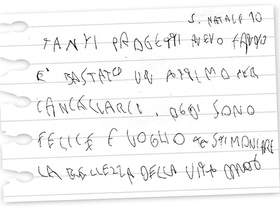 S. NATALE 10
TANTI PROGETTI AVEVO FATTO
E' BASTATO UN ATTIMO PER
CANCELLARLI. OGGI SONO
FELICE E VOGLIO TESTIMONIARE
LA BELLEZZA DELLA VITA